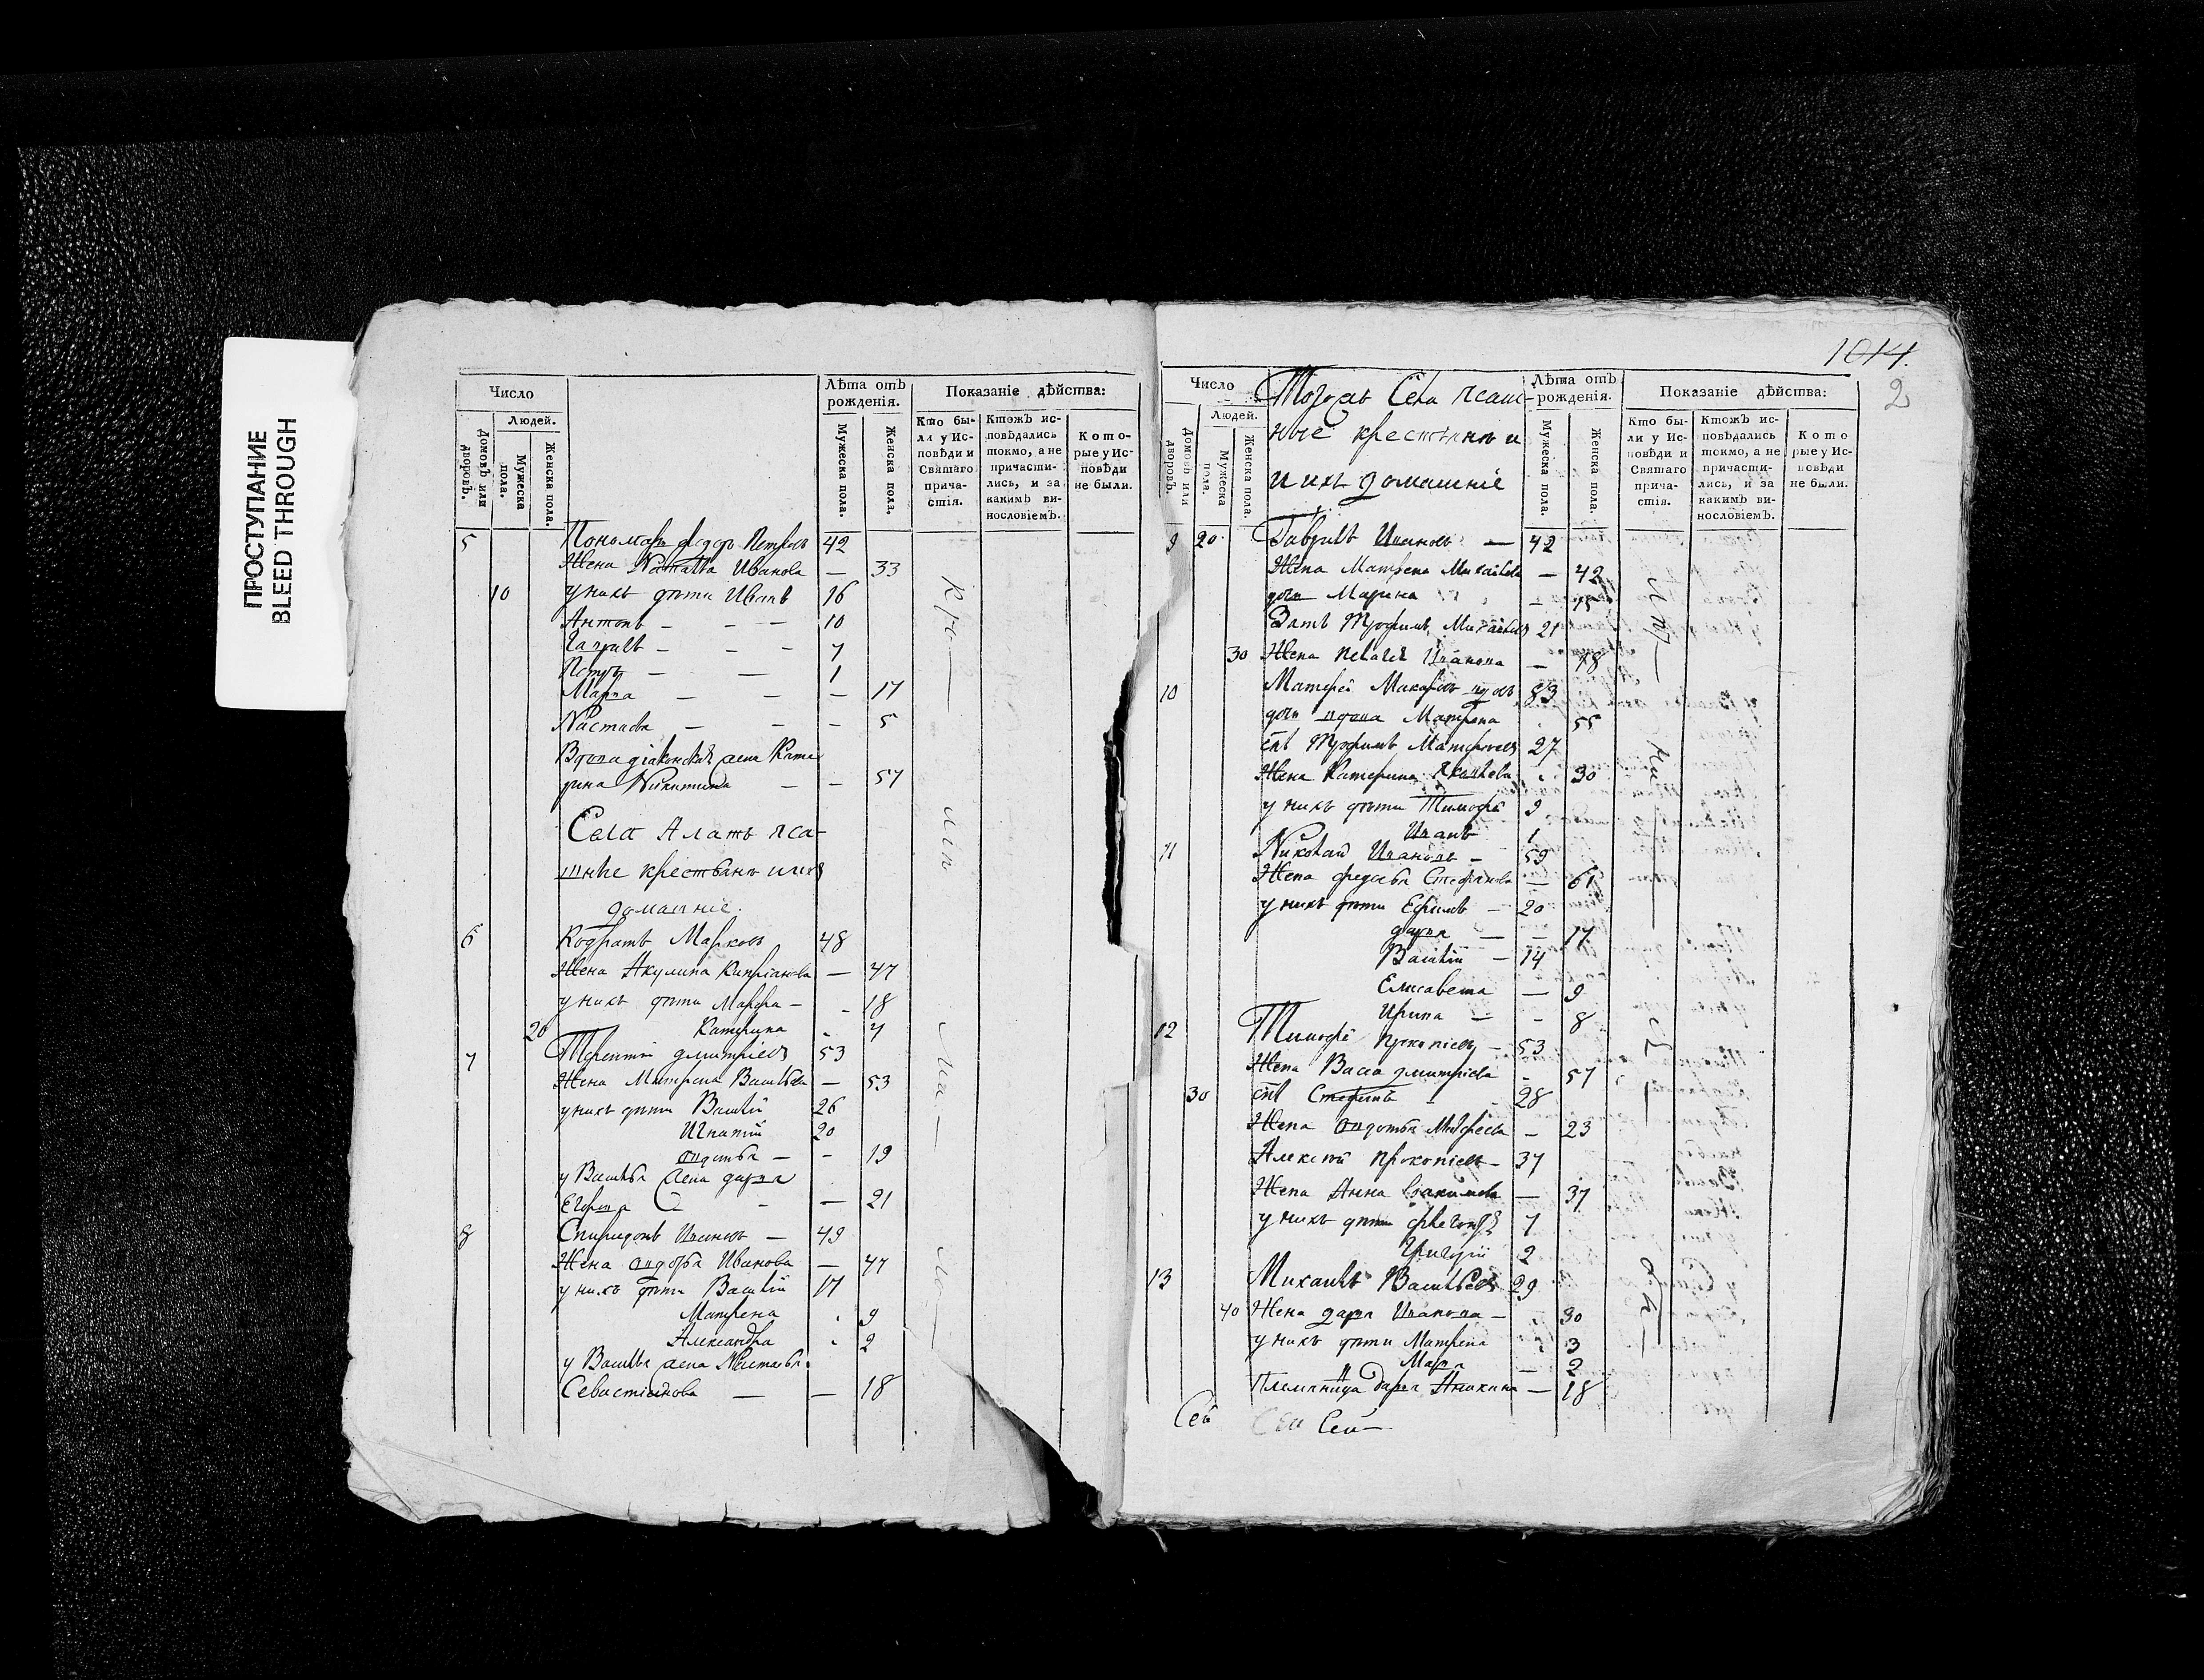 ПРОСТУПАНИЕ
BLEED THROUGH
Число
Людей.
Домовъ или дворовъ.
Мужеска пола.
Женска пола.
Лѣта отъ рожденія.
Мужеска пола.
Женска пола.
Показаніе дѣйства:
Кто были у Исповѣди и Святаго причастія.
Ктожъ исповѣдались токмо, а не причастились, и за какимъ винословіемъ.
Которые у Исповѣди не были.
5 Пономарь Федоръ Петровъ 42
Жена Наталья Иванова — 33
10 у нихъ дѣти Иванъ 16
Антонъ — — — 10
Гаврилъ — — — 7
Петръ — — 1
Марѳа — — — 17
Настасья — — — 5
Вдова діаконская жена Кате
рина Никитина — — 57
Села Алатъ яса-
шные крестьянъ и ихъ
домашніе.
6 Кодратъ Марковъ 48
Жена Акулина Кипріянова — 47
у нихъ дѣти Марфа — - 18
20 Катерина - 7
7 Терентій Дмитріевъ 53
Жена Матрена Васильева — 53
у нихъ дѣти Василій 26
Игнатій 20
Авдотья — - 19
у Василья жена Дарья
Егорова — - — 21
8 Спиридонъ Ивановъ — 49
Жена Авдотья Иванова — 47
у нихъ дѣти Василій 17
Матрена - 9
Александра - 2
у Василья жена Настасья
Севастіянова — — 18
1014.
2
Число
Людей.
Домовъ или дворовъ.
Мужеска пола.
Женска пола.
Тогожъ Села ясаш-
ные крестьянъ и
и ихъ домашніе
Лѣта отъ рожденія.
Мужеска пола.
Женска пола.
Показаніе дѣйства:
Кто были у Исповѣди и Святаго причастія.
Ктожъ исповѣдались токмо, а не причастились, и за какимъ винословіемъ.
Которые у Исповѣди не были.
9 20 Гаврилъ Ивановъ — 42
Жена Матрена Михайлова — 42
дочь Марина — 15
Зять Трофимъ Михайловъ 21
30 Жена Пелагея Иванова — 18
10 Матфей Макаровъ вдовъ 83
дочь вдова Матрена - 55
Трофимъ Матфеевъ 27
Жена Катерина Яковлева - 30
у нихъ дѣти Тимофей 9
Иванъ 1
11 Николай Ивановъ — 59
Жена Федосья Стефанова — 61
у нихъ дѣти Ефимъ — 20
Дарья — — 17
Василій — 14
Елисавета — 9
Ирина — - 8
12 Тимофей Прокопіевъ — 53
Жена Васса Дмитріева - 57
30 Стефанъ - - 28
Жена Авдотья — 23
Алексѣй Прокопіевъ — 37
Жена Анна — 37
у нихъ дѣти 7
Григорій 2
13 Михаилъ Васильевъ 29
40 Жена Дарья Иванова — - 30
у нихъ дѣти Матрена - 3
Марѳа — 2
Племянница Дарья — 18
Сей Сей Сей —